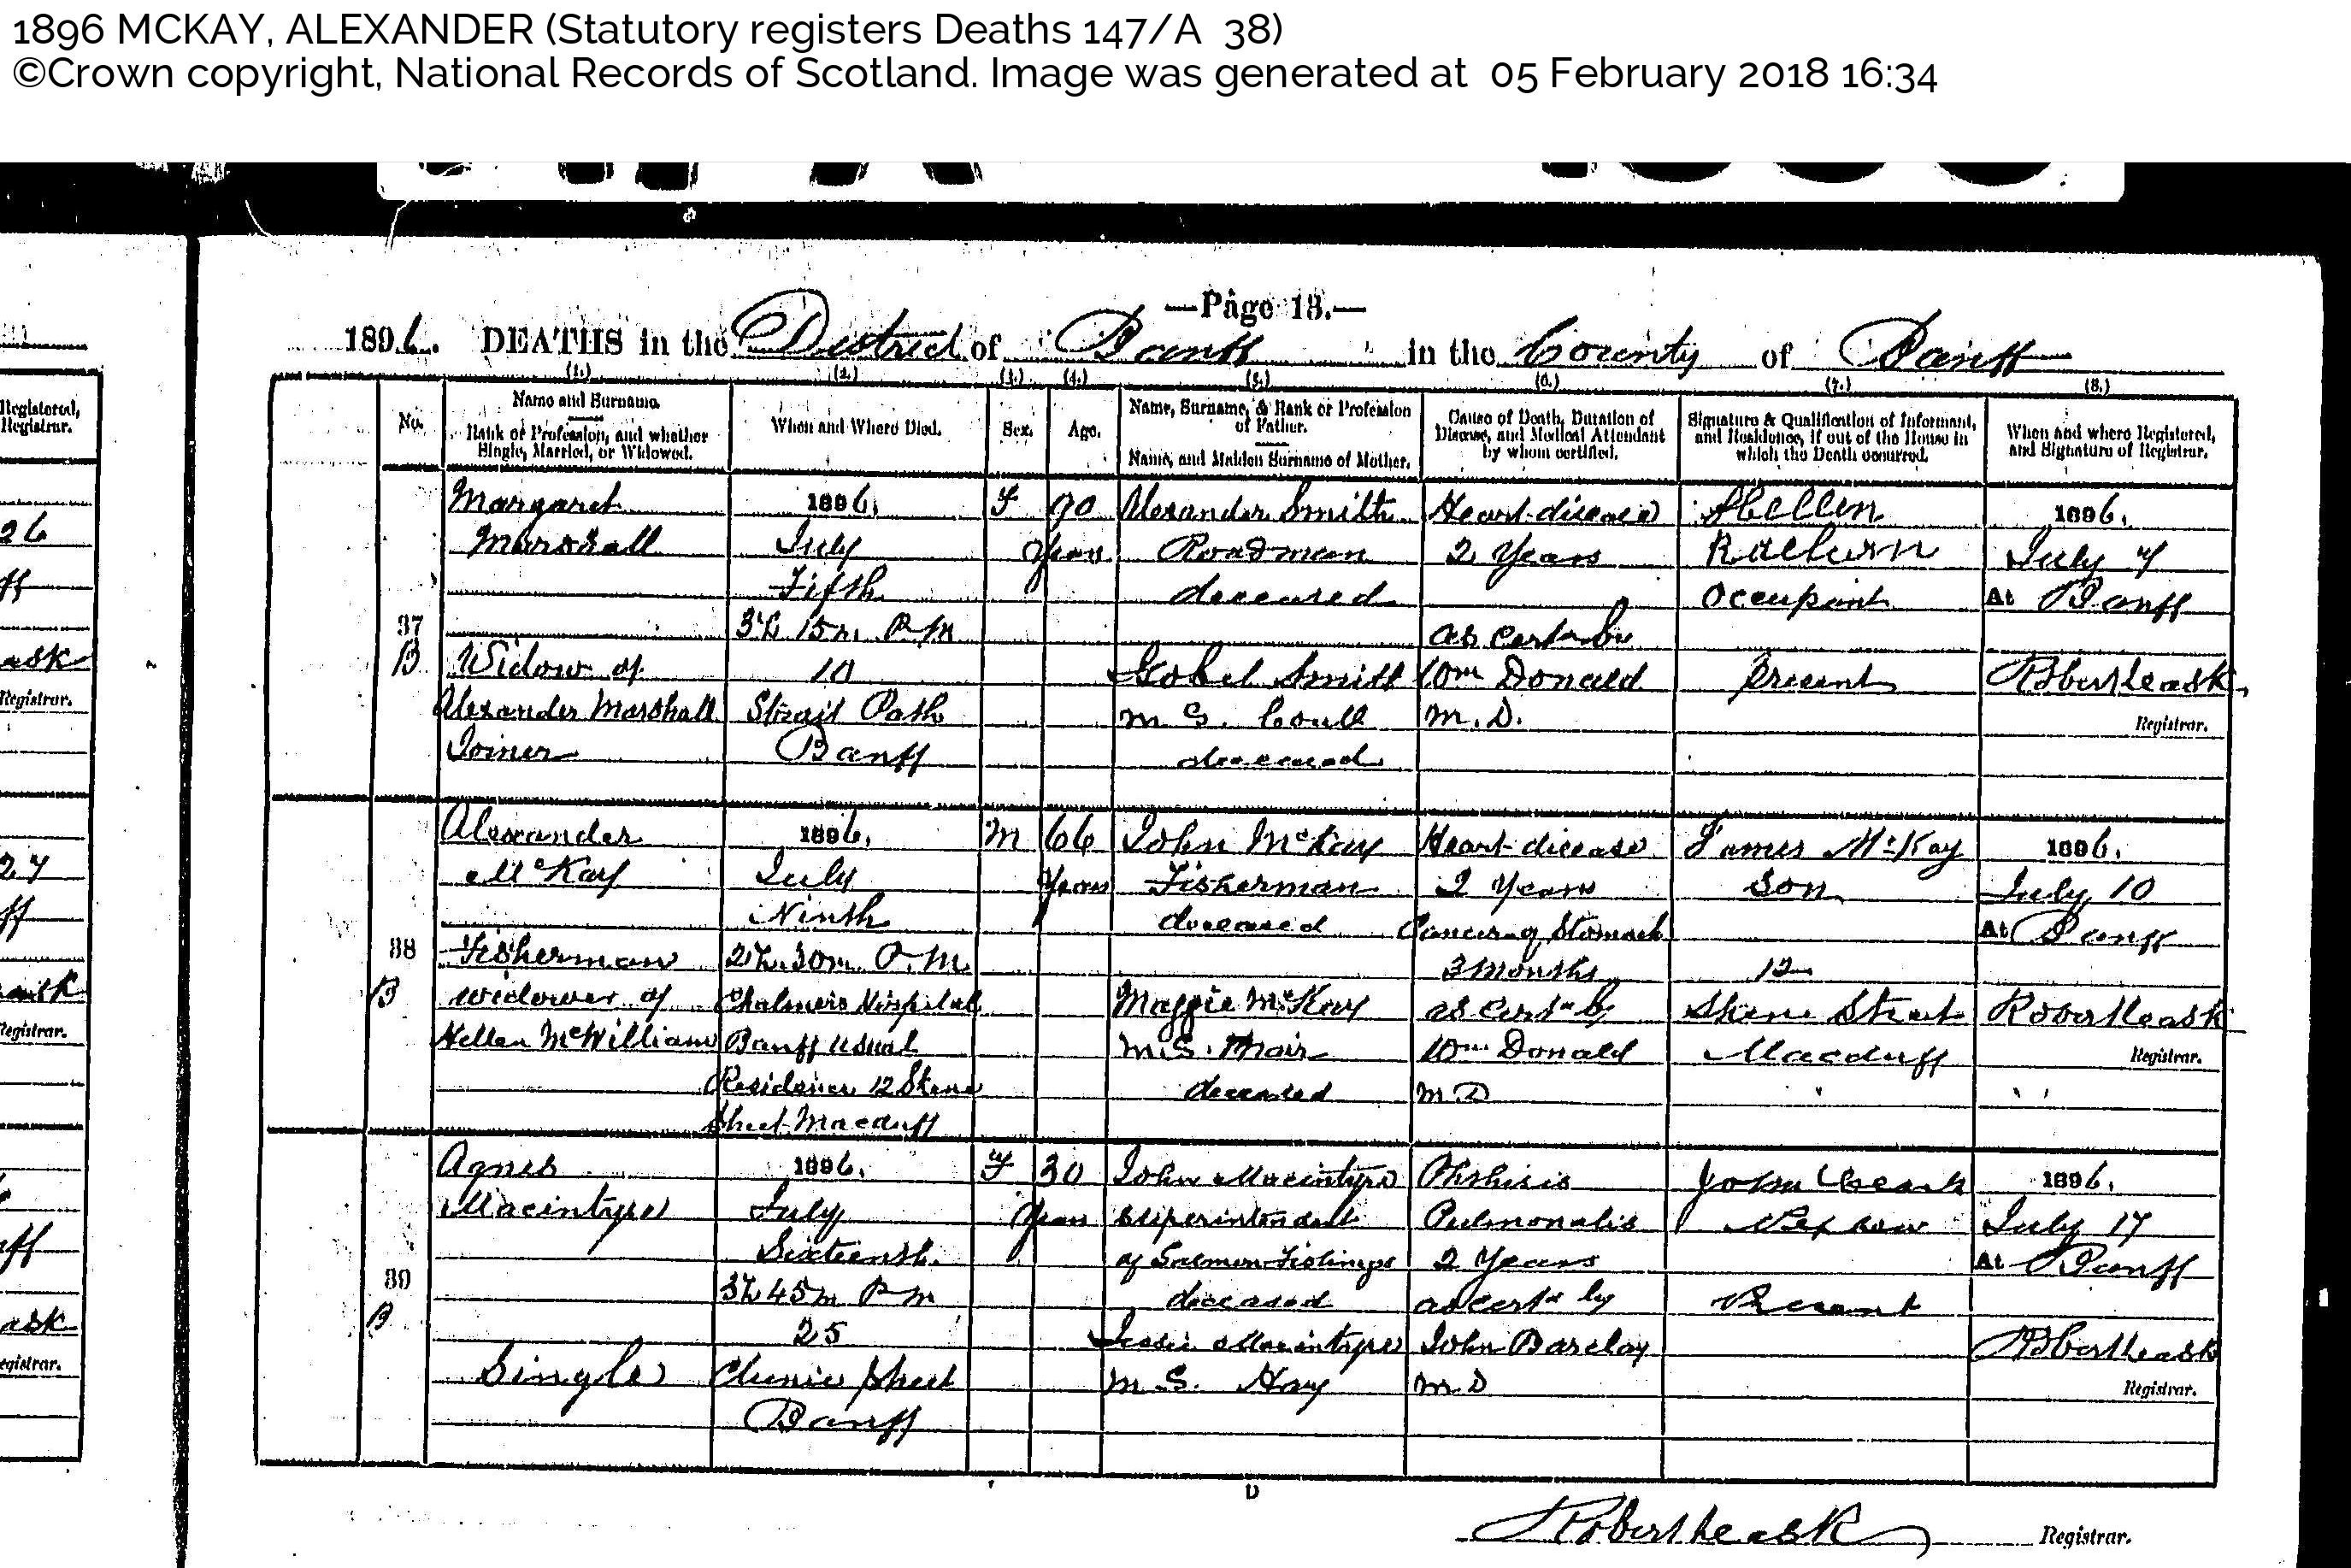 1896 MCKAY, ALEXANDER (Statutory registers Deaths 147/A 38)
©Crown copyright, National Records of Scotland. Image was generated at 05 February 2018 16:34
—Page 13.—
1896. DEATHS in the District of Banff in the County of Banff
(1.) (2.) (3.) (4.) (5.) (6.) (7.) (8.)
No.
Name and Surname.
Rank or Profession, and whether
Single, Married, or Widowed.
When and Where Died.
Sex.
Age.
Name, Surname, & Rank or Profession
of Father.
Name, and Maiden Surname of Mother.
Cause of Death, Duration of
Disease, and Medical Attendant
by whom certified.
Signature & Qualification of Informant,
and Residence, if out of the House in
which the Death occurred.
When and where Registered,
and Signature of Registrar.
37
B
Margaret
Marshall
Widow of
Alexander Marshall
Joiner
1896.
July
Fifth
3h. 15m. P.M
10
Strait Path
Banff
F
90
Years
Alexander Smith
Roadman
deceased
Isobel Smith
M.S. Coull
deceased
Heart disease
2 Years
as certd by
Wm Donald
M.D.
Hellen
Raeburn
Occupant
Present
1896.
July 7
At Banff
Robert Leask
Registrar.
38
B
Alexander
McKay
Fisherman
widower of
Hellen McWilliam
1896.
July
Ninth
2h. 30m. P.M
Chalmers Hospital
Banff usual
Residence 12 Skene
Street Macduff
M
66
Years
John McKay
Fisherman
deceased
Maggie McKay
M.S. Mair
deceased
Heart disease
2 Years
Cancer of Stomach
3 Months
as certd by
Wm Donald
M D
James McKay
Son
12
Skene Street
Macduff
1896.
July 10
At Banff
Robert Leask
Registrar.
39
B
Agnes
Macintyre
Single
1896.
July
Sixteenth.
3h 45m P m
25
Clunie Street
Banff
F
30
Years
John Macintyre
Superintendent
of Salmon Fishings
deceased
Jessie Macintyre
M.S. Hay
Phthisis
Pulmonalis
2 Years
as certd by
John Barclay
M D
John
Nephew
Present
1896.
July 17
At Banff
Robert Leask
Registrar.
D
Robert Leask Registrar.